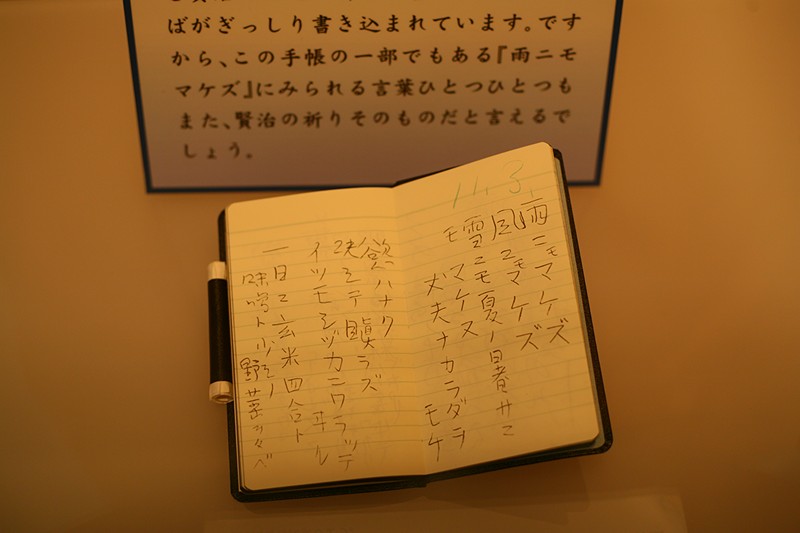 ばがぎっしり書き込まれています。です
から、この手帳の一部でもある『雨ニモ
マケズ』にみられる言葉ひとつひとつも
また、賢治の祈りそのものだと言えるで
しょう。
11.3.
雨ニモマケズ
風ニモマケズ
雪ニモ夏ノ暑サニ
モ マケヌ
丈夫ナカラダヲ
モチ
慾ハナク
決シテ瞋ラズ
イツモシヅカニワラッテヰル
一日ニ玄米四合ト
味噌ト少シノ野菜ヲタベ